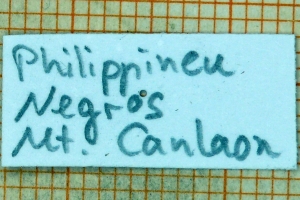 Philippinen
Negros
Mt. Canlaon